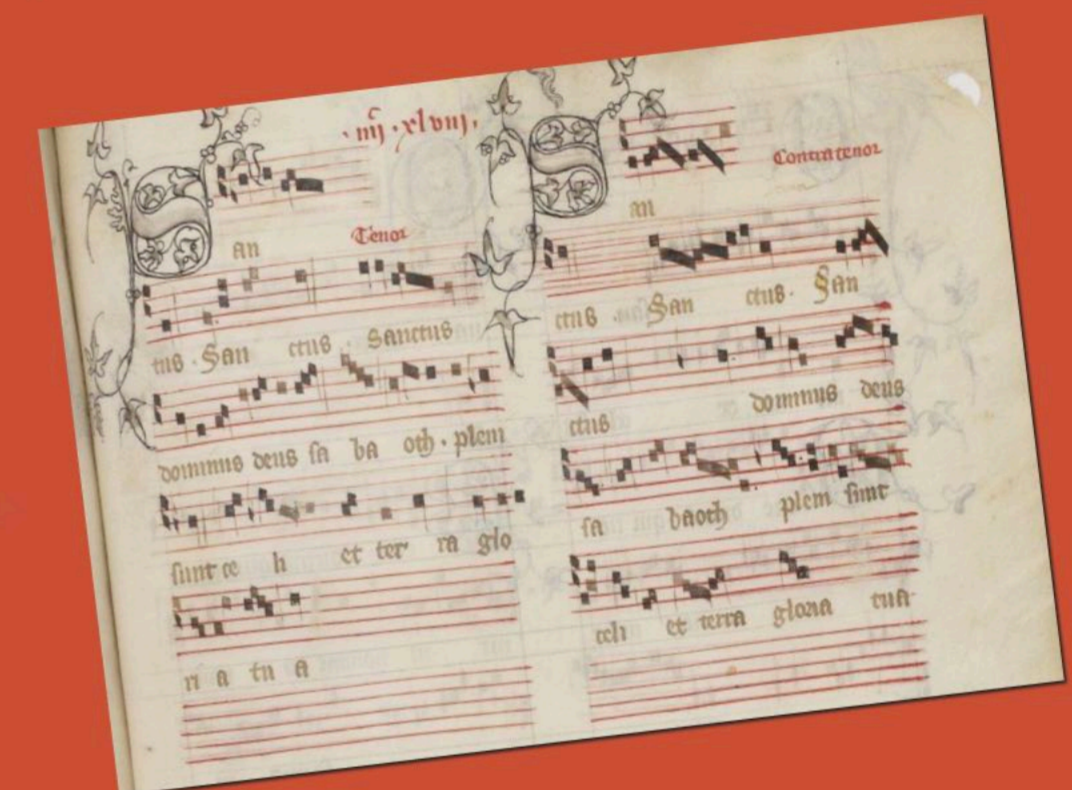 .iiijᶜ.xlviij.
San
Tenor
tus . San ctus . Sanctus
dominus deus sa ba oth . plem
sunt ce li et ter ra glo
ri a tu a
San
Contratenor
ctus San ctus . San
ctus dominus deus
sa baoth plem sunt
celi et terra gloria tua